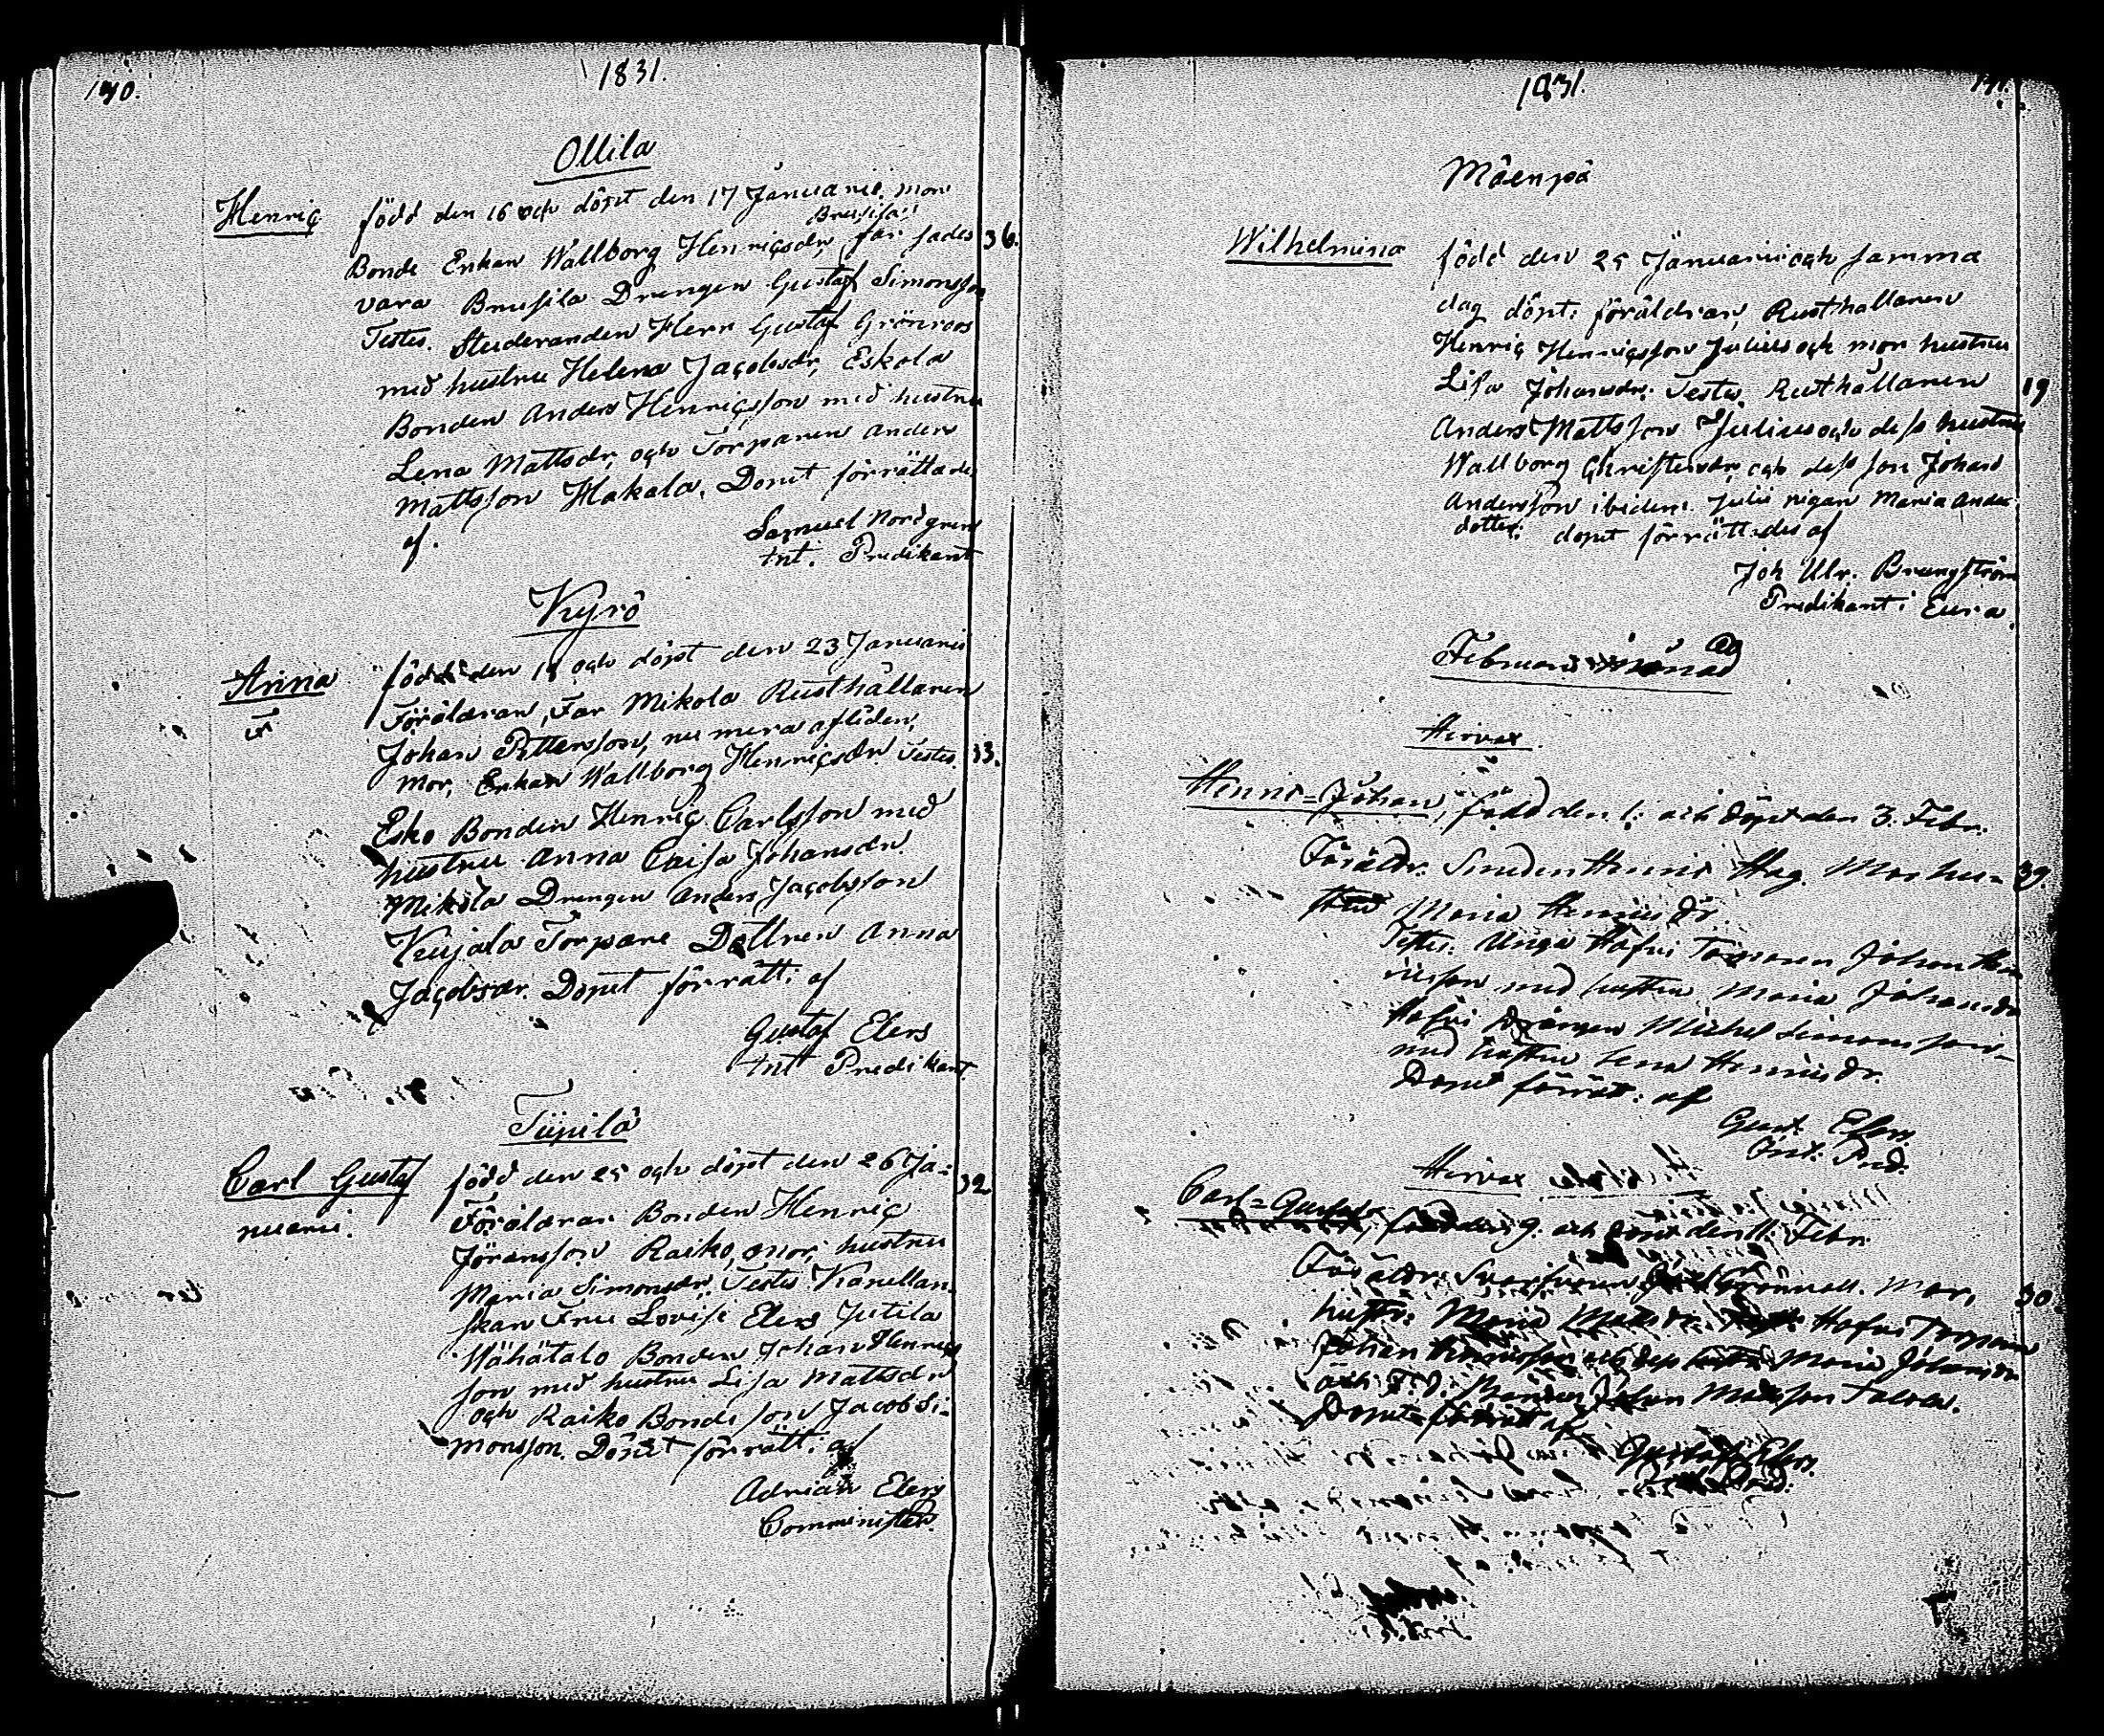 170.
1831.
Ollila
Henric född den 16 och döpt den 17 Januarii. mor
Brusila
Bonde Enkan Wallborg Henricsdr, far sades 36.
vara Brusila Drengen Gustaf Simonsson
Testes. Studeranden Herr Gustaf Grönroos
med hustru Helena Jacobsdr, Eskola
Bonden Anders Henricsson med hustru
Lena Mattsdr, och Torparen Anders
Mattsson Hakala. Döpet förrättades
af. Samuel Nordgren
tnt. Predikant
Kyrö
Anna född den 19 och döpt den 23 Januarii
Föräldrar, Far Mikola Rusthållaren
Johan Pettersson, nu mera afliden,
Mor, Enkan Wallborg Henricsdr Testes. 33.
Esko Bonden Henric Carlsson med
hustru Anna Caisa Johansdr.
Mikola Drengen Anders Jacobsson
Kujala Torpare Dottren Anna
Jacobsdr. Döpet förrätt. af
Gustaf Elers
tnt Predikant.
Tüpilä
Carl Gustaf född den 25 och döpt den 26 Ja= 32
nuarii. Föräldrar Bonden Henric
Jöransson Raiko, mor, hustru
Maria Simonsdr. Testes
skan Fru Lovisa Elers Jutila
Wähätalo Bonden Johan Henrics
son med hustru Lisa Mattsdr
och Raiko Bonde son Jacob Si=
monsson. Döpet förrätt. af
Adrian Elers
Comminister.
1831.
171.
Mäenpä
Wilhelmina född den 25 Januarii och samma
dag döpt. föräldrar, Rusthållaren
Henric Henricsson Julius och mor hustru
Lisa Johansdr. Testes. Rusthållaren 19
Anders Mattsson Julius och dess hustru
Wallborg Christersdr, och dess son Johan
Andersson ibidem. Julii pigan Maria Anders
dotter. döpet förrättades af
Joh Ulr. Brungström
Predikant i Eura.
Februarii Månad
Hirvax
Henric=Johan, född den 1. och döpt den 3. Febr.
Föräldr. Smeden Henric Hag. Mor hu= 39.
stru Maria Henricsdr.
Testes: Unga Hafvi Torparen Johan Hen
ricsson med hustru Maria Johansdr
Hafvi Drängen Michel Simonsson
med hustru Lena Henricsdr.
Döpet förrät. af
Gust. Elers.
Ord. Pred.
Hirvax
Carl=Gustaf, född den 9. och döpt den 11. Febr.
Föräldr. Svarfvaren Grönvall. Mor, 30
hustr. Maria Matsdr. Hafvi Torparen
Johan Henricsson och dess hustru Maria Johansdr
och Johan Matsson
Döpet förrät af
Gustaf Elers.